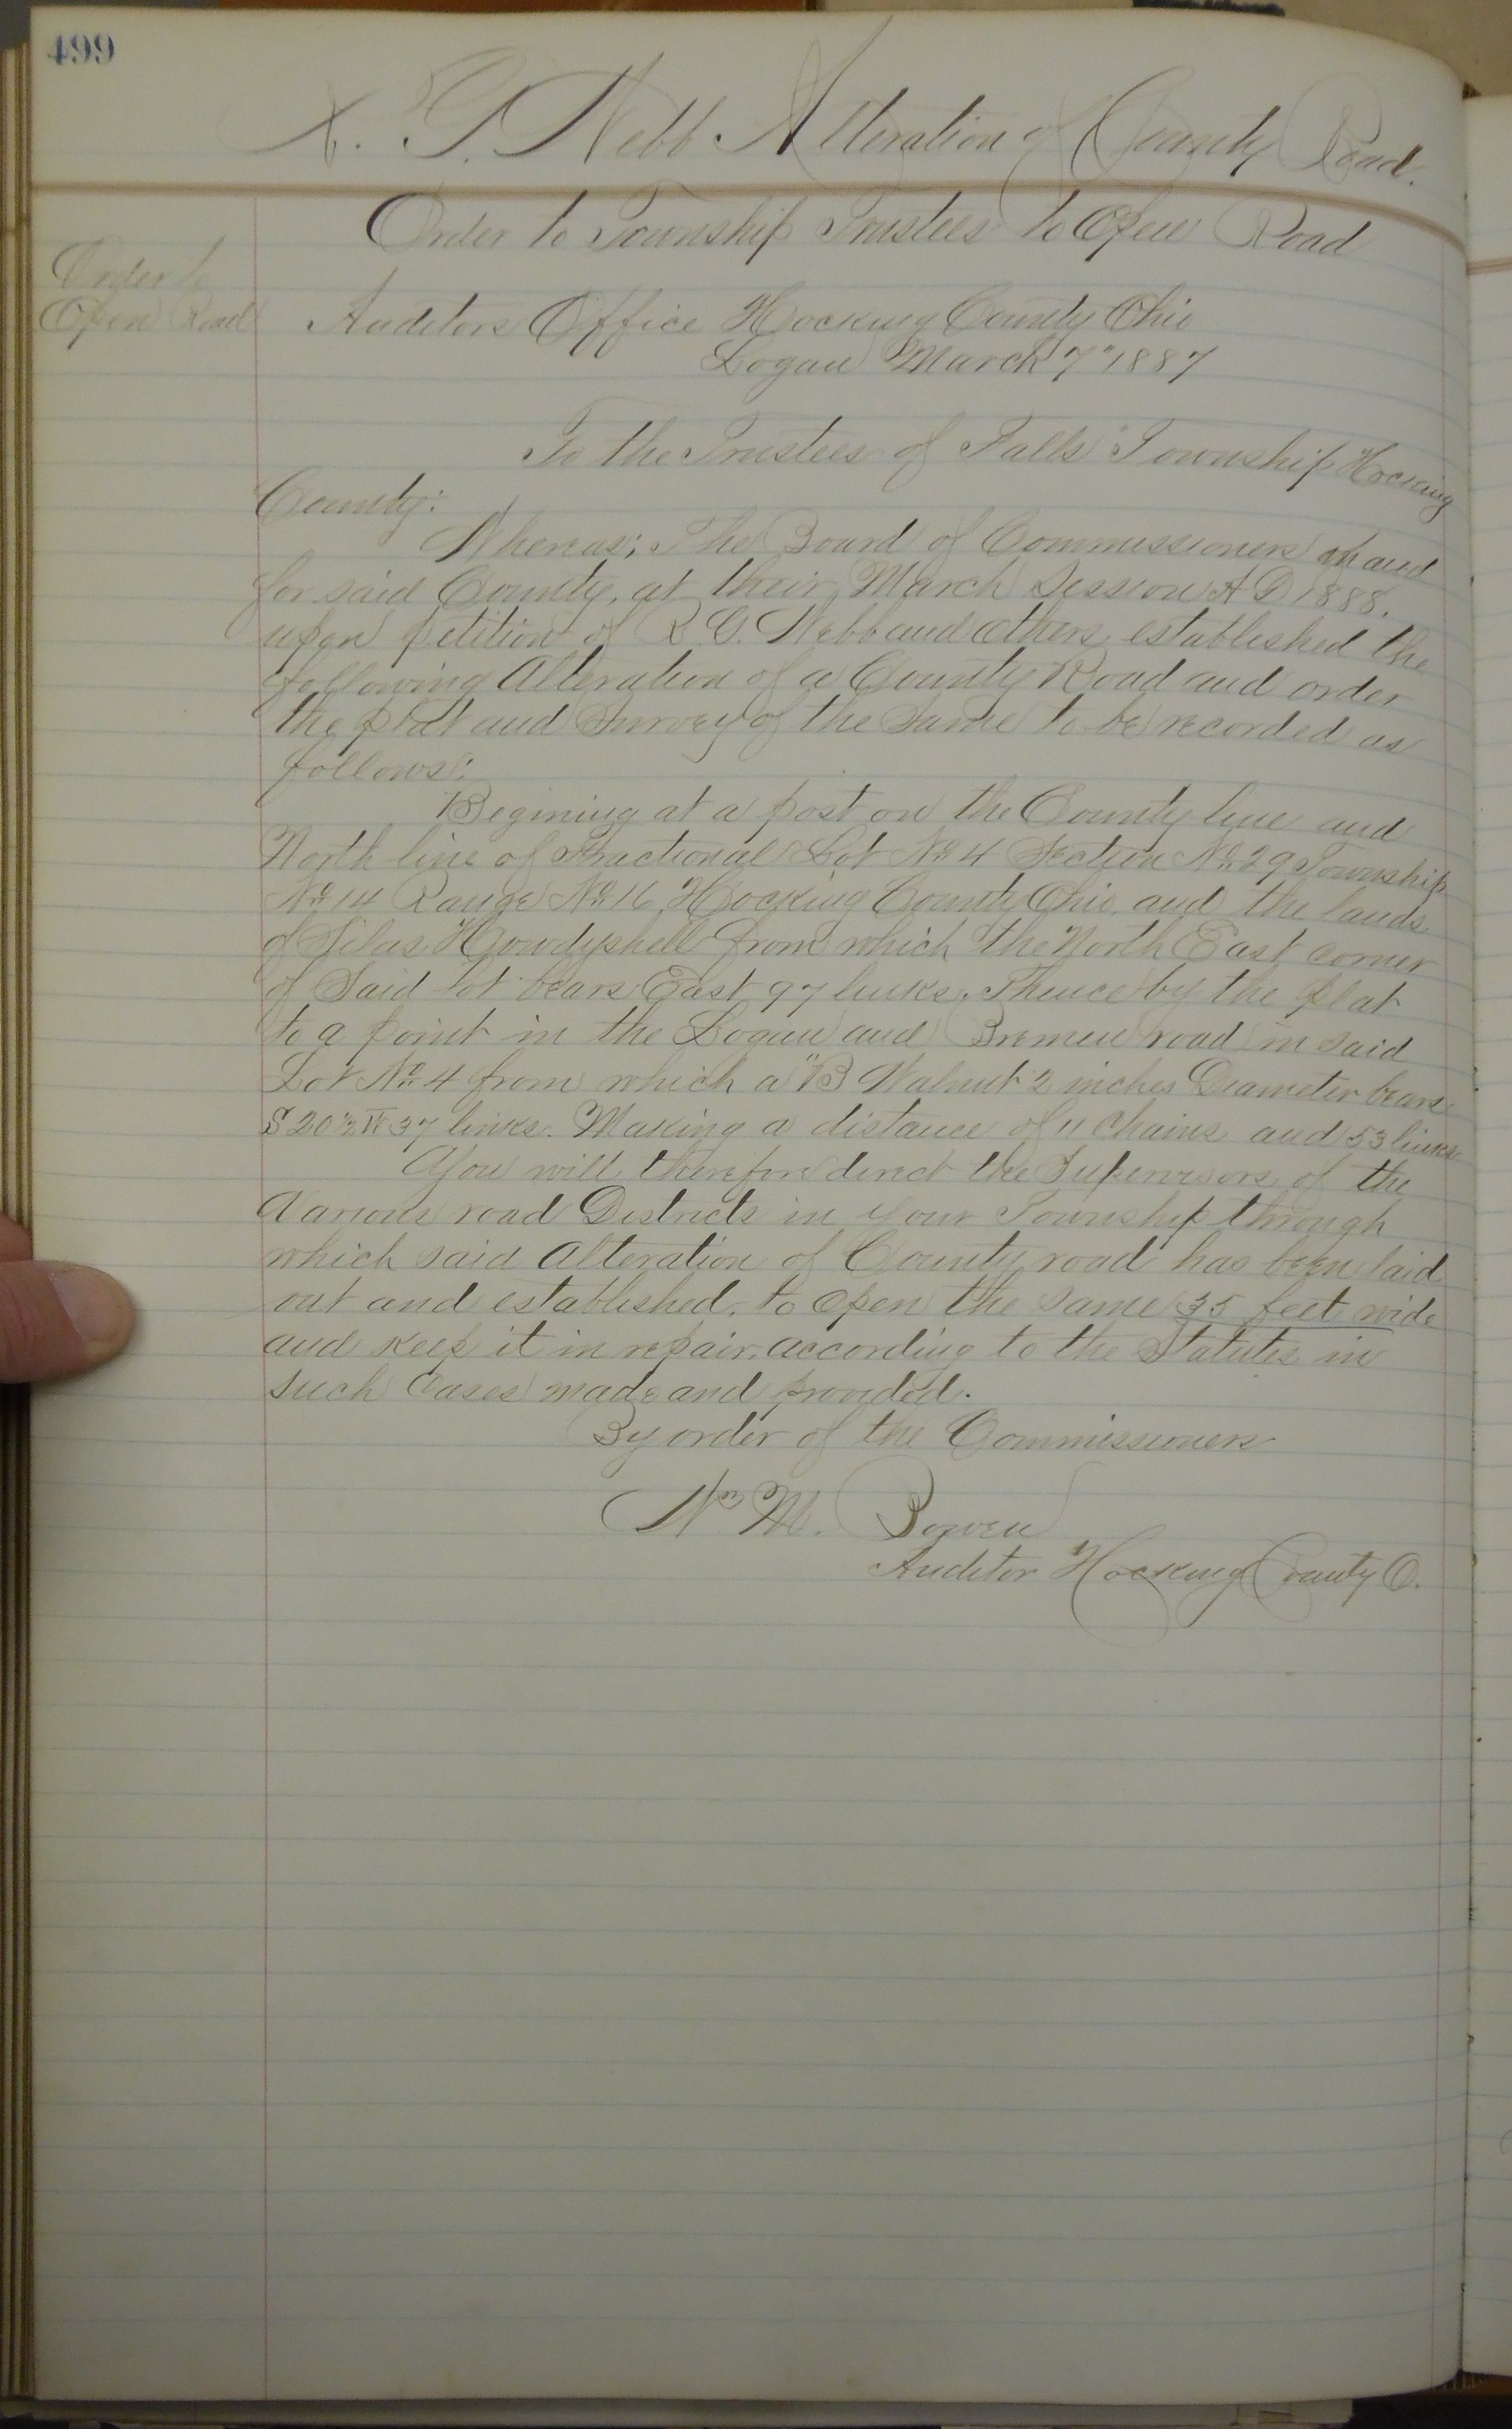 499
G. Webb Alteration of County Road.
Order to Township Trustees to Open Road
Order to
Open Road
Auditors Office Hocking County Ohio
Logan March 7" 1887
To the Trustees of Falls Township Hocking
County:
Whereas; The Board of Commissioners and
for said County, at their March Session A D 1888.
upon petition of Webb and others established the
following Alteration of a County Road and order
the plat and Survey of the Same to be recorded as
follows:
Begining at a post on the County line and
North line of Fractional Lot No. 4 Section No. 29 Township
No. 14 Range No. 16 Hocking County Ohio and the lands
of Silas Howdyshell from which the North East corner
of Said lot bears East 97 links. Thence by the plat
to a point in the Logan and Bremen road in said
Lot No. 4 from which a "B Walnut 2 inches Diameter bears
S 20½ W 37 links. Making a distance of 11 Chains and 53 links
You will therefore direct the Supervisors of the
Various road Districts in your Township through
which said Alteration of County road has been laid
out and established, to Open the same 35 feet wide
and keep it in repair, according to the Statutes in
such Cases made and provided.
By order of the Commissioners
Wm M. Bowen
Auditor Hocking County O.